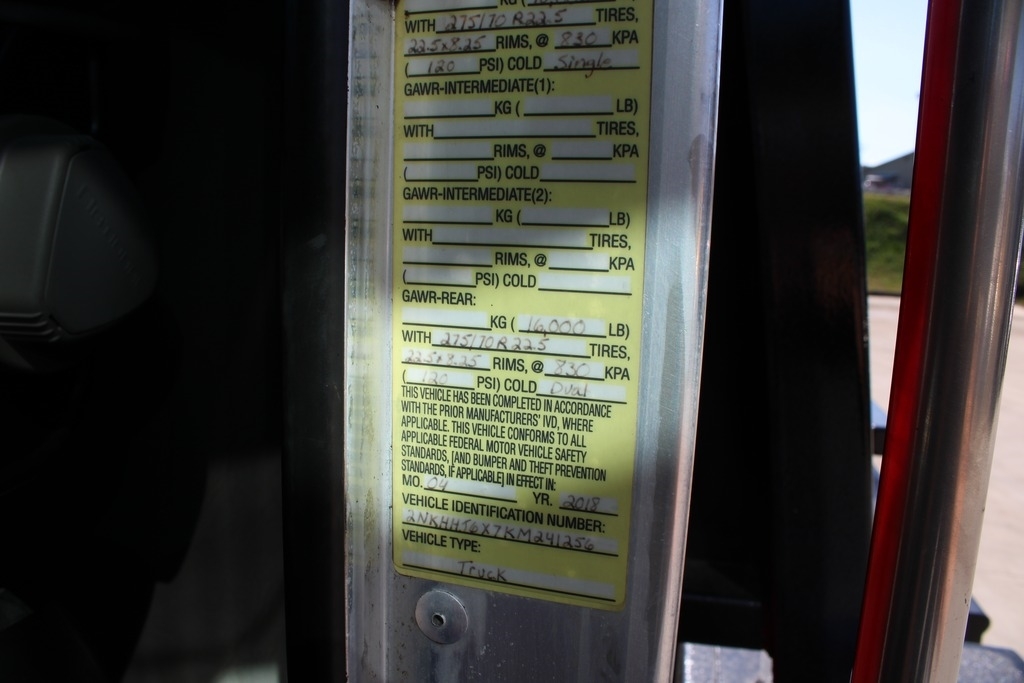 KG (
WITH 275/70 R22.5 TIRES,
22.5x8.25 RIMS, @ 830 KPA
( 120 PSI) COLD Single
GAWR-INTERMEDIATE(1):
KG ( LB)
WITH TIRES,
RIMS, @ KPA
( PSI) COLD
GAWR-INTERMEDIATE(2):
KG ( LB)
WITH TIRES,
RIMS, @ KPA
( PSI) COLD
GAWR-REAR:
KG ( 16,000 LB)
WITH 275/70R22.5 TIRES,
22.5x8.25 RIMS, @ 830 KPA
( 120 PSI) COLD Dual
THIS VEHICLE HAS BEEN COMPLETED IN ACCORDANCE
WITH THE PRIOR MANUFACTURERS' IVD, WHERE
APPLICABLE. THIS VEHICLE CONFORMS TO ALL
APPLICABLE FEDERAL MOTOR VEHICLE SAFETY
STANDARDS, [AND BUMPER AND THEFT PREVENTION
STANDARDS, IF APPLICABLE] IN EFFECT IN:
MO. 04 YR. 2018
VEHICLE IDENTIFICATION NUMBER:
2NKHHJ6X7KM241256
VEHICLE TYPE:
Truck